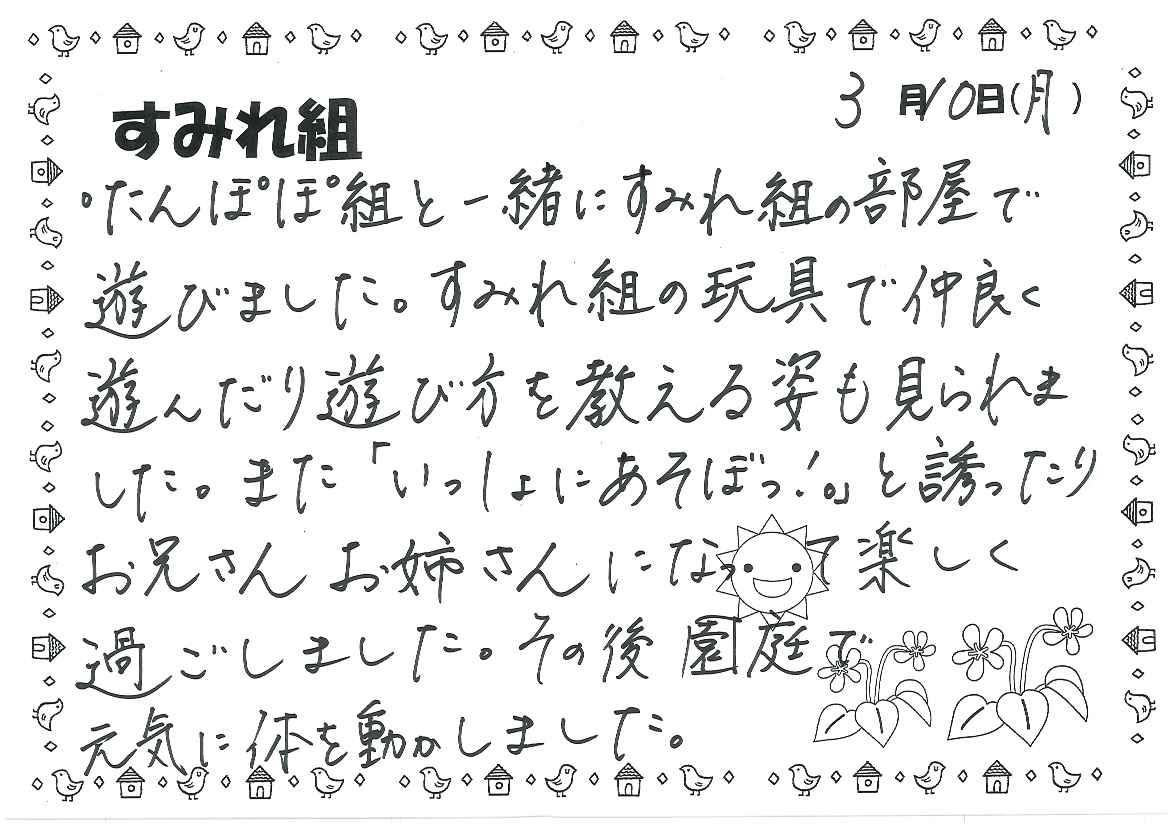 すみれ組
3月10日(月)
・たんぽぽ組と一緒にすみれ組の部屋で
遊びました。すみれ組の玩具で仲良く
遊んだり遊び方を教える姿も見られま
した。また「いっしょにあそぼっ!。」と誘ったり
お兄さんお姉さんになって楽しく
過ごしました。その後園庭で
元気に体を動かしました。